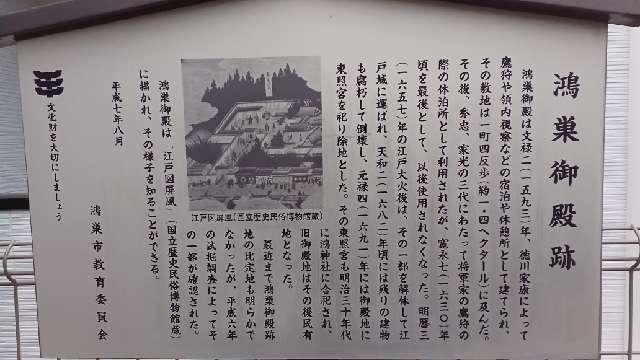 鴻巣御殿跡
鴻巣御殿は文禄二(一五九三)年、徳川家康によって
鷹狩や領内視察などの宿泊や休憩所として建てられ、
その敷地は一町四反歩(約一・四ヘクタール)に及んだ。
その後、秀忠、家光の三代にわたって将軍家の鷹狩の
際の休泊所として利用されたが、寛永七(一六三〇)年
頃を最後として、以後使用されなくなった。明暦三
(一六五七)年の江戸大火後は、その一部を解体して江
戸城に運ばれ、天和二(一六八二)年頃には残りの建物
も腐朽して倒壊し、元禄四(一六九一)年には御殿地に
東照宮を祀り除地とした。その東照宮も明治三十年代
に鴻神社に合祀され、
旧御殿地はその後民有
地となった。
最近まで鴻巣御殿跡
地の比定地も明らかで
なかったが、平成六年
の試掘調査によってそ
の一部が確認された。
江戸図屏風(国立歴史民俗博物館蔵)
鴻巣御殿は、江戸図屏風(国立歴史民俗博物館蔵)
に描かれ、その様子を知ることができる。
平成七年八月
鴻巣市教育委員会
文化財を大切にしましょう